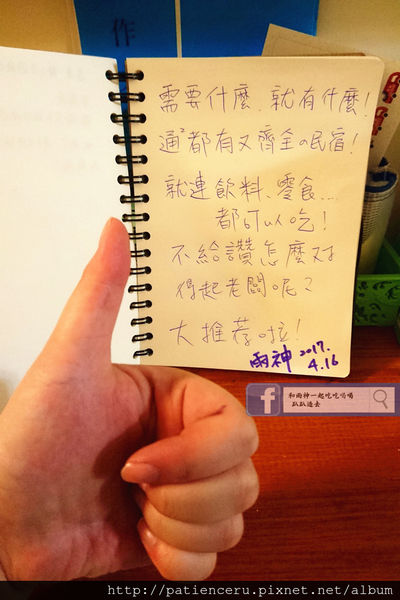 作
需要什麼、就有什麼!
通²都有又齊全の民宿!
就連飲料、零食...
都可以吃!
不給讚怎麼对
得起老闆呢?
大推荐啦!
雨神 2017.
4.16
f
和雨神一起吃吃喝喝
趴趴造去
http://patienceru.pixnet.net/album